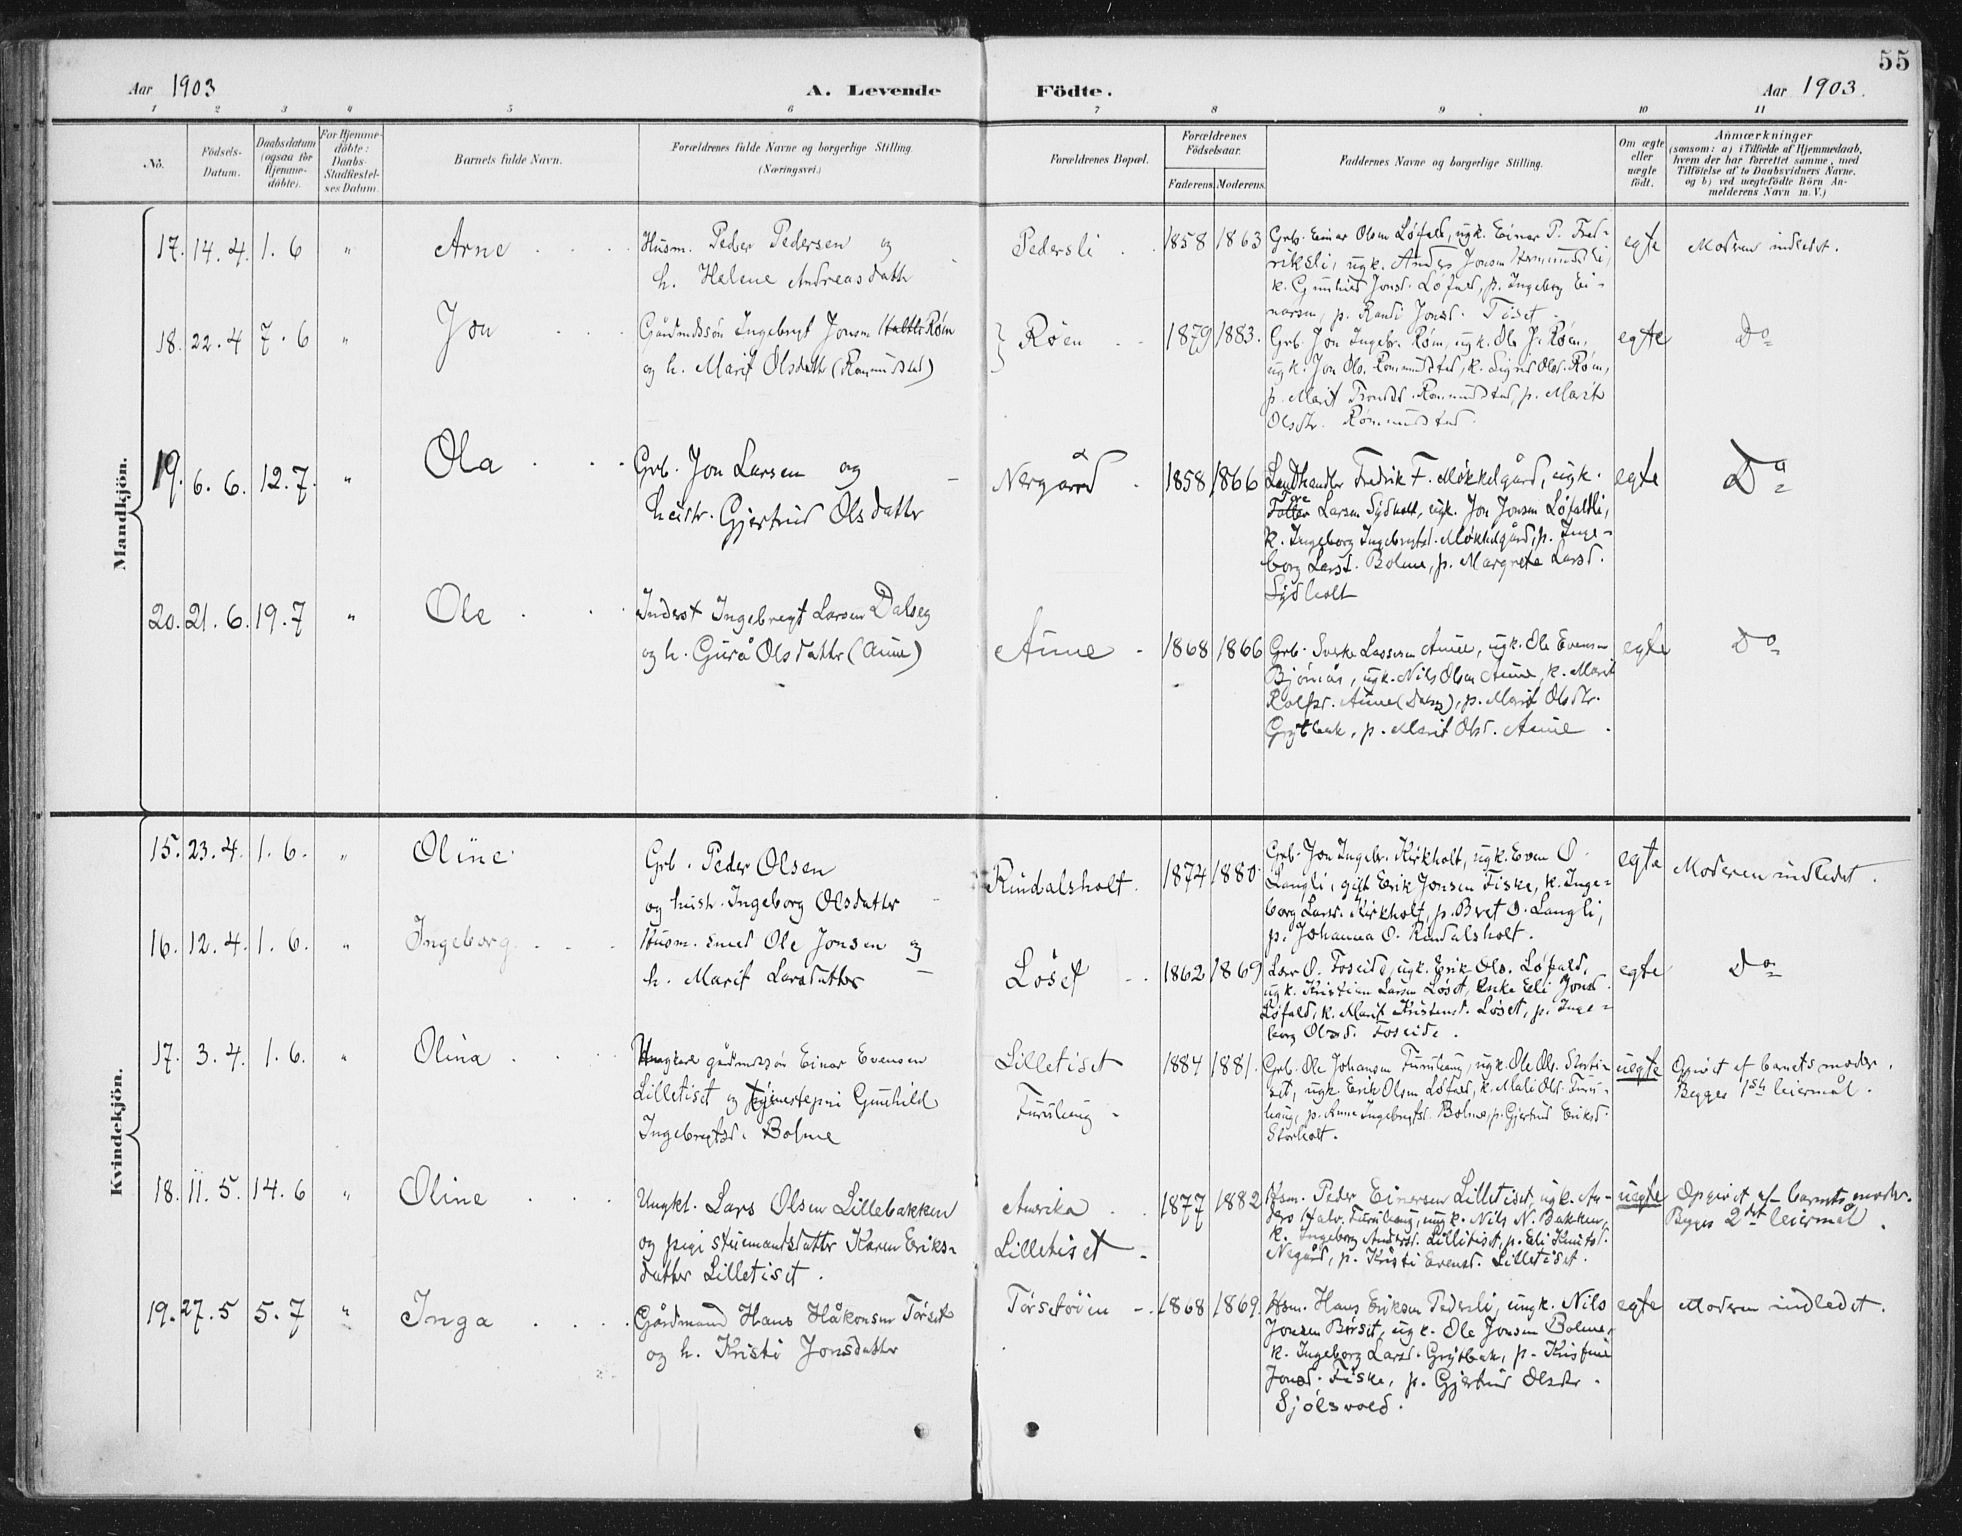 55
Aar 1903
A. Levende
Födte.
Aar 1903.
1 2 3 4 5 6 7 8 9 10 11
No.
Födsels-
Datum.
Daabsdatum
(ogsaa for
Hjemme-
döbte).
For Hjemme-
döbte:
Daabs-
Stadfæstel-
ses Datum.
Barnets fulde Navn.
Forældrenes fulde Navne og borgerlige Stilling.
(Næringsvei.)
Forældrenes Bopæl.
Forældrenes
Födselsaar.
Faderens. Moderens.
Faddernes Navne og borgerlige Stilling.
Om ægte
eller
uægte
födt.
Anmærkninger
(saasom: a) i Tilfælde af Hjemmedaab,
hvem der har forrettet samme, med
Tilföielse af to Daabsvidners Navne.
og b) ved uægtefödte Börn An-
melderens Navn m. V.)
Mandkjön.
17. 14.4. 1.6 " Arne
Husm. Peder Pedersen og
h. Helene Andreasdattr
Pedersli
1858 1863
Grb. Einar Olsen Løfald, ugk. Einar P. Fred-
riksli, ugk. Anders Jonsen
k. Gunhild Jonsd. Løfald, p. Ingeborg Ei-
narsen, p. Randi Jonsd. Tiset.
egte
Moderen indledet.
18. 22.4 7.6 " Jon
Gårdmdssøn Ingebrigt Jonsen Røen
og h. Marit Olsdattr (Romundstad)
Røen
1879 1883.
Grb. Jon Ingebr. Røen, ugk. Ole J. Røen,
ugk. Jon Ols. Rommundstad, k. Sigrid Olsd. Røen,
p. Marit Trondsd. Rommundstad, p. Marit
Olsdtr. Rommundstad.
egte
Do
19. 6.6. 12.7. " Ola
Grb. Jon Larsen og
hustr. Gjertrud Olsdatter
Nergård
1858 1866
Landhandler Fredrik F. Møkkelgård, ugk.
Tore
Larsen Sydholt, ugk. Jon Jonsen Løfaldli,
k. Ingeborg Ingebrigtsd. Møkkelgård, p. Inge-
borg Larsd. Bolme, p. Margrete Larsd.
Sydholt
egte
Do
20. 21.6. 19.7 " Ole
Inderst Ingebregt Larsen Dalseg
og h. Gurå Olsdatter (Aune)
Aune
1868 1866
Grb. Sverke Lassesen Aune, ugk. Ole Evensen
Bjørnås, ugk. Nils Olsen Aune, k. Marit
Rolfsd. Aune (Dalseg), p. Marit Olsdtr.
Grytbak, p. Marit Olsd. Aune.
egte
Do
Kvindekjön.
15. 23.4. 1.6. " Oline
Grb. Peder Olsen
og hustr. Ingeborg Olsdatter
Rindalsholt.
1874 1880.
Grb. Jon Ingebr. Kirkholt, ugk. Even O.
Langli, gift Erik Jonsen Fiske, k. Inge-
borg Larsd. Kirkholt, p. Beret O. Langli,
p. Johanna O. Rindalsholt.
egte
Moderen indledet.
16. 12.4. 1.6. " Ingeborg
Husm. smed Ole Jonsen og
h. Marit Larsdatter
Løset
1862 1869
Lars O. Foseide, ugk. Erik Ols. Løfald,
ugk. Kristian Larsen Løset, Enke Eli Jonsd.
Løfald, k. Marit Kristensd. Løset, p. Inge-
borg Olsd. Foseide.
egte
Do
17. 3.4. 1.6. " Olina
Ungkarl gårdmdssøn Einar Evensen
Lilletiset og tjenestepi Gunhild
Ingebrigtsd. Bolme
Lilletiset
Furulung
1884 1881.
Grb. Ole Johansen Furulung, ugk. Ole Ols.
set, ugk. Erik Olsen Løfald, k. Mali Olsd. Furu-
lung, p. Anne Ingebrigtsd. Bolme, p. Gjertrud Eriksd.
Storholt.
uegte
Opgivet af barnets moder.
Begges 1ste leiermål.
18. 11.5. 14.6 " Oline
Ungkl. Lars Olsen Lillebakken
og pige stuemandsdatter Karen Eriks-
datter Lilletiset.
Amerika
Lilletiset
1877 1882
Hsm. Peder Einersen Lilletiset, ugk. An-
ders Halv. Furulung, ungk. Nils N. Bakken,
k. Ingeborg Andersd. Lilletiset, p. Eli Knutsd.
Negård, p. Kristi Evensd. Lilletiset.
uegte
Opgivet af barnets moder.
Begges 2det leiermål.
19. 27.5 5.7 " Inga
Gårdmand Hans Håkonsen Tørset
og h. Kristi Jonsdatter
Tørsetøien
1868 1869.
Hsm. Hans Eriksen Pedersli, ungk. Nils
Jonsen Børset, ugk. Ole Jonsen Bolme,
k. Ingeborg Larsd. Grytbak, p. Kristine
Jonsd. Fiske, p. Gjertrud Olsdtr.
Sjølsvold.
egte
Moderen indledet.